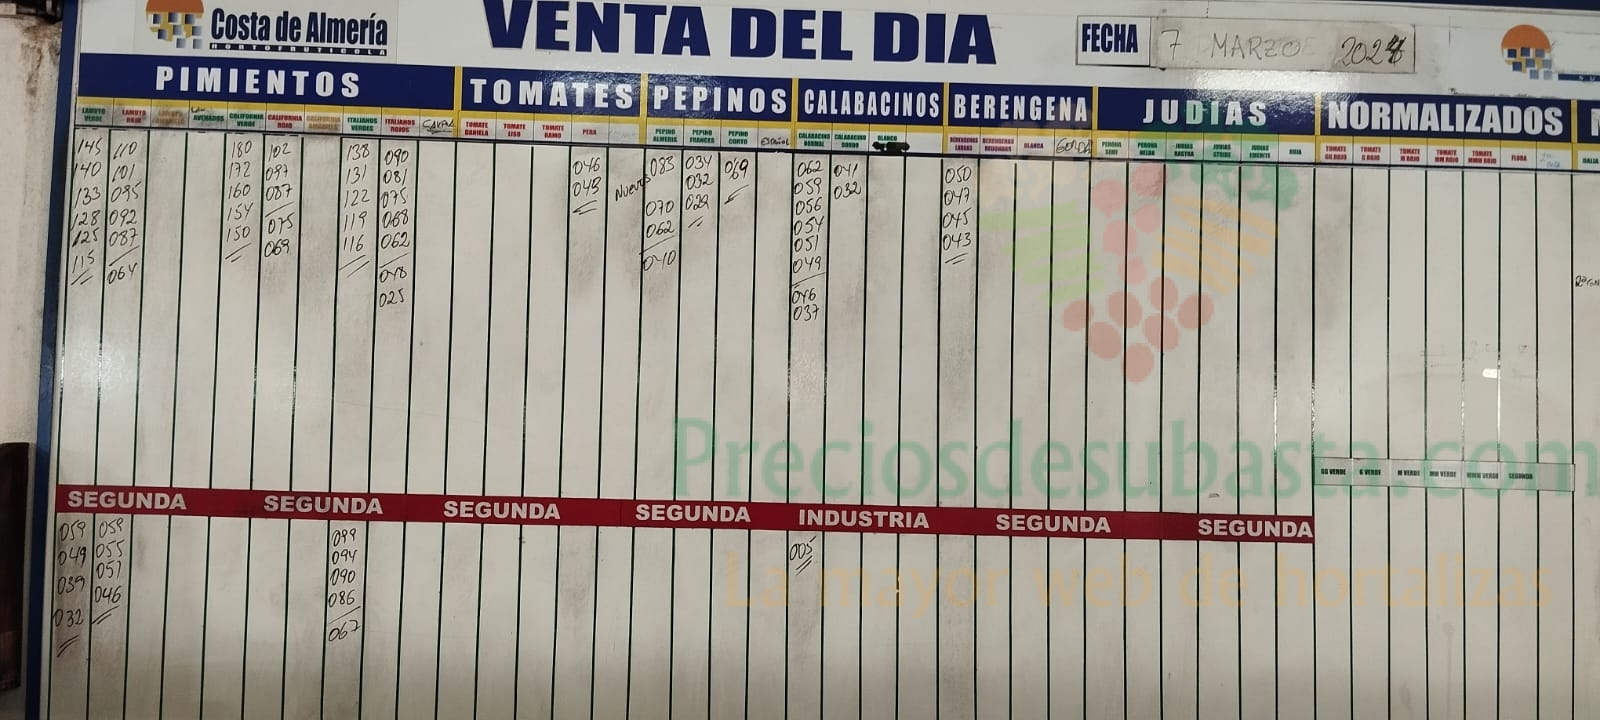 Costa de Almería
HORTOFRUTICOLA
VENTA DEL DIA
FECHA
7 MARZO 2024
PIMIENTOS
TOMATES
PEPINOS
CALABACINOS
BERENGENA
JUDIAS
NORMALIZADOS
LAMUYO VERDE
LAMUYO ROJO
CALIFORNIA VERDE
CALIFORNIA ROJO
CALIFORNIA AMARILLO
ITALIANOS VERDES
ITALIANOS ROJOS
TOMATE DANIELA
TOMATE LISO
TOMATE RAMO
PERA
PEPINO ALMERIA
PEPINO FRANCES
PEPINO CORTO
ESPAÑOL
CALABACINO NORMAL
CALABACINO GORDO
BLANCO
BERENGENAS LARGAS
BERENGENAS REDONDAS
BLANCA
GORDA
PERONA SEMI
PERONA HELDA
JUDIAS RASTRA
JUDIAS STRIKE
JUDIAS EMERITE
ROJA
TOMATE GG ROJO
TOMATE G ROJO
TOMATE M ROJO
TOMATE MM ROJO
TOMATE MMM ROJO
FLORA
145
140
133
128
125
115
110
101
095
092
087
064
180
172
160
154
150
102
097
087
075
069
138
131
122
119
116
090
081
075
068
062
048
025
046
043
NUEVO
083
070
062
040
034
032
029
069
062
059
056
054
051
049
046
037
041
032
050
047
045
043
Preciosdesubasta.com
La mayor web de hortalizas
GG VERDE
G VERDE
M VERDE
MM VERDE
MMM VERDE
SEGUNDA
SEGUNDA
SEGUNDA
SEGUNDA
SEGUNDA
INDUSTRIA
SEGUNDA
SEGUNDA
059
049
039
032
059
055
051
046
099
094
090
086
067
005